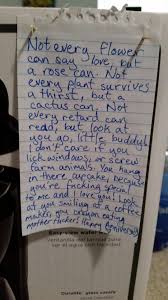 Not every flower
can say love, but
a rose can. Not
every plant survives
a thirst, but a
cactus can. Not
every retard can
read, but look at
you go, little buddy!
I don't care if you
lick windows, or screw
farm animals. You
hang in there cupcake, because
you're fucking special
to me and I love you! Look
at you smiling at a coffee
maker, you crayon eating
mother fucker! Happy Anniversary
Easy-view water
Ventanilla del nivel de agua
Durable, glass carafe